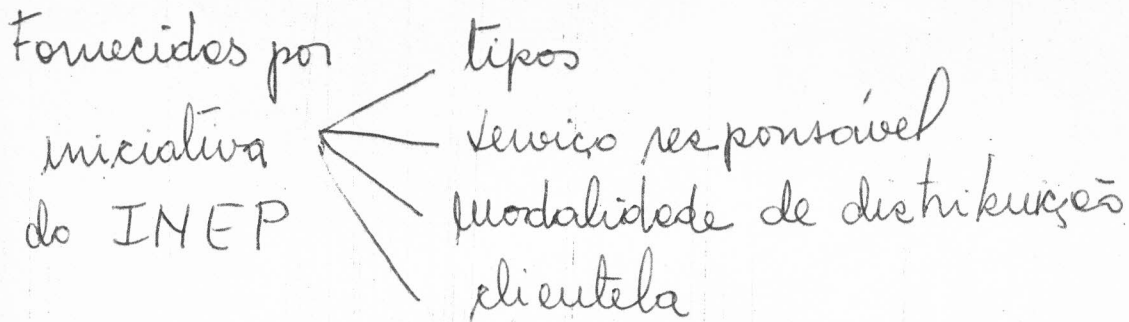 Fornecidos por
iniciativa
do INEP
tipos
serviço responsável
modalidade de distribuição
clientela